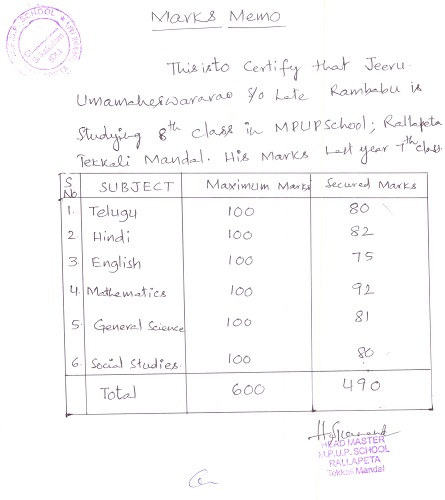 Marks Memo
M.P.U.P. SCHOOL
This is to Certify that Jeeru
Umamaheswararao S/o Late Rambabu is
Studying 8th class in MPUPSchool; Rallapeta
Tekkali Mandal. His Marks Last year 7th class.
S No SUBJECT Maximum Marks Secured Marks
1. Telugu 100 80
2. Hindi 100 82
3. English 100 75
4. Mathematics 100 92
5. General Science 100 81
6. Social Studies. 100 80
Total 600 490
HEAD MASTER
M.P.U.P. SCHOOL
RALLAPETA
Tekkali Mandal